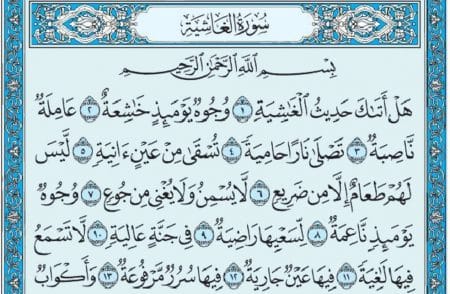 سُورَةُ الغَاشِيَةِ
بِسْمِ ٱللَّهِ ٱلرَّحْمَٰنِ ٱلرَّحِيمِ
هَلْ أَتَىٰكَ حَدِيثُ ٱلْغَٰشِيَةِ ١ وُجُوهٌ يَوْمَئِذٍ خَٰشِعَةٌ ٢ عَامِلَةٌ
نَّاصِبَةٌ ٣ تَصْلَىٰ نَارًا حَامِيَةً ٤ تُسْقَىٰ مِنْ عَيْنٍ ءَانِيَةٍ ٥ لَّيْسَ
لَهُمْ طَعَامٌ إِلَّا مِن ضَرِيعٍ ٦ لَّا يُسْمِنُ وَلَا يُغْنِي مِن جُوعٍ ٧ وُجُوهٌ
يَوْمَئِذٍ نَّاعِمَةٌ ٨ لِّسَعْيِهَا رَاضِيَةٌ ٩ فِي جَنَّةٍ عَالِيَةٍ ١٠ لَّا تَسْمَعُ
فِيهَا لَٰغِيَةً ١١ فِيهَا عَيْنٌ جَارِيَةٌ ١٢ فِيهَا سُرُرٌ مَّرْفُوعَةٌ ١٣ وَأَكْوَابٌ